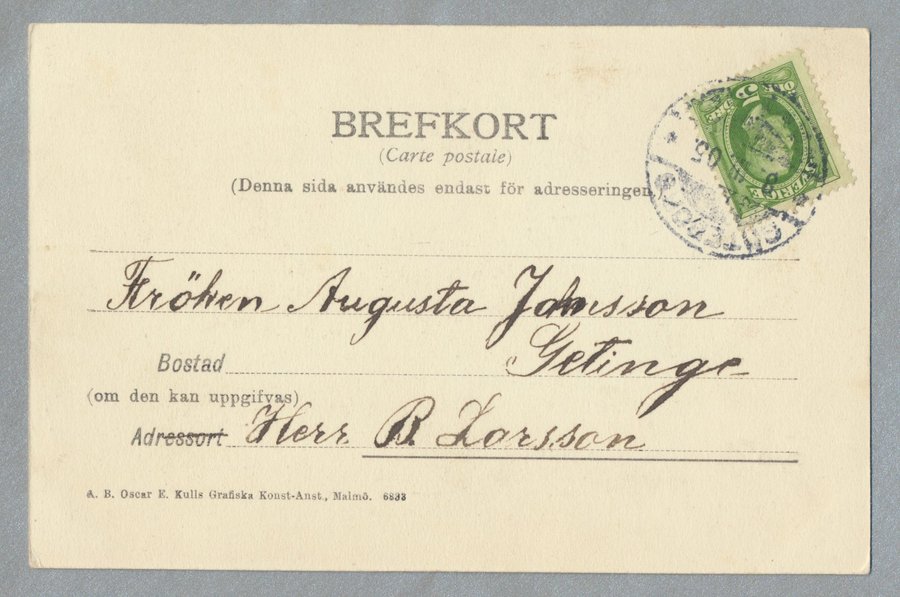 BREFKORT
(Carte postale)
(Denna sida användes endast för adresseringen.)
Fröken Augusta Johnsson
Bostad Getinge
(om den kan uppgifvas)
Adressort Herr B. Larsson
A. B. Oscar E. Kulls Grafiska Konst-Anst., Malmö. 6833
5
ÖRE
SVERIGE
05